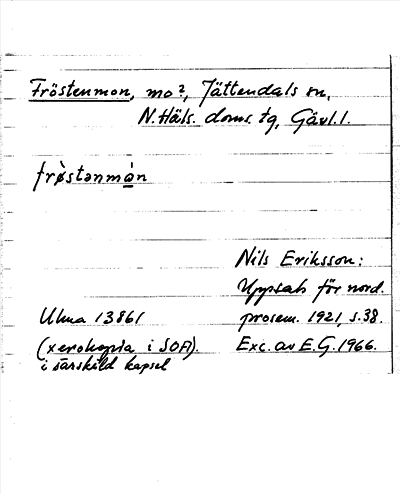 Fröstenmon, mo?, Jättendals sn,
N. Häls. doms. tg, Gävl. l.
frø̀stənmàn
Nils Eriksson:
Uppsats för nord.
Ulma 13861
prosem. 1921, s. 38.
(xerokopia i SOA).
Exc. av E.G. 1966.
i särskild kapsel